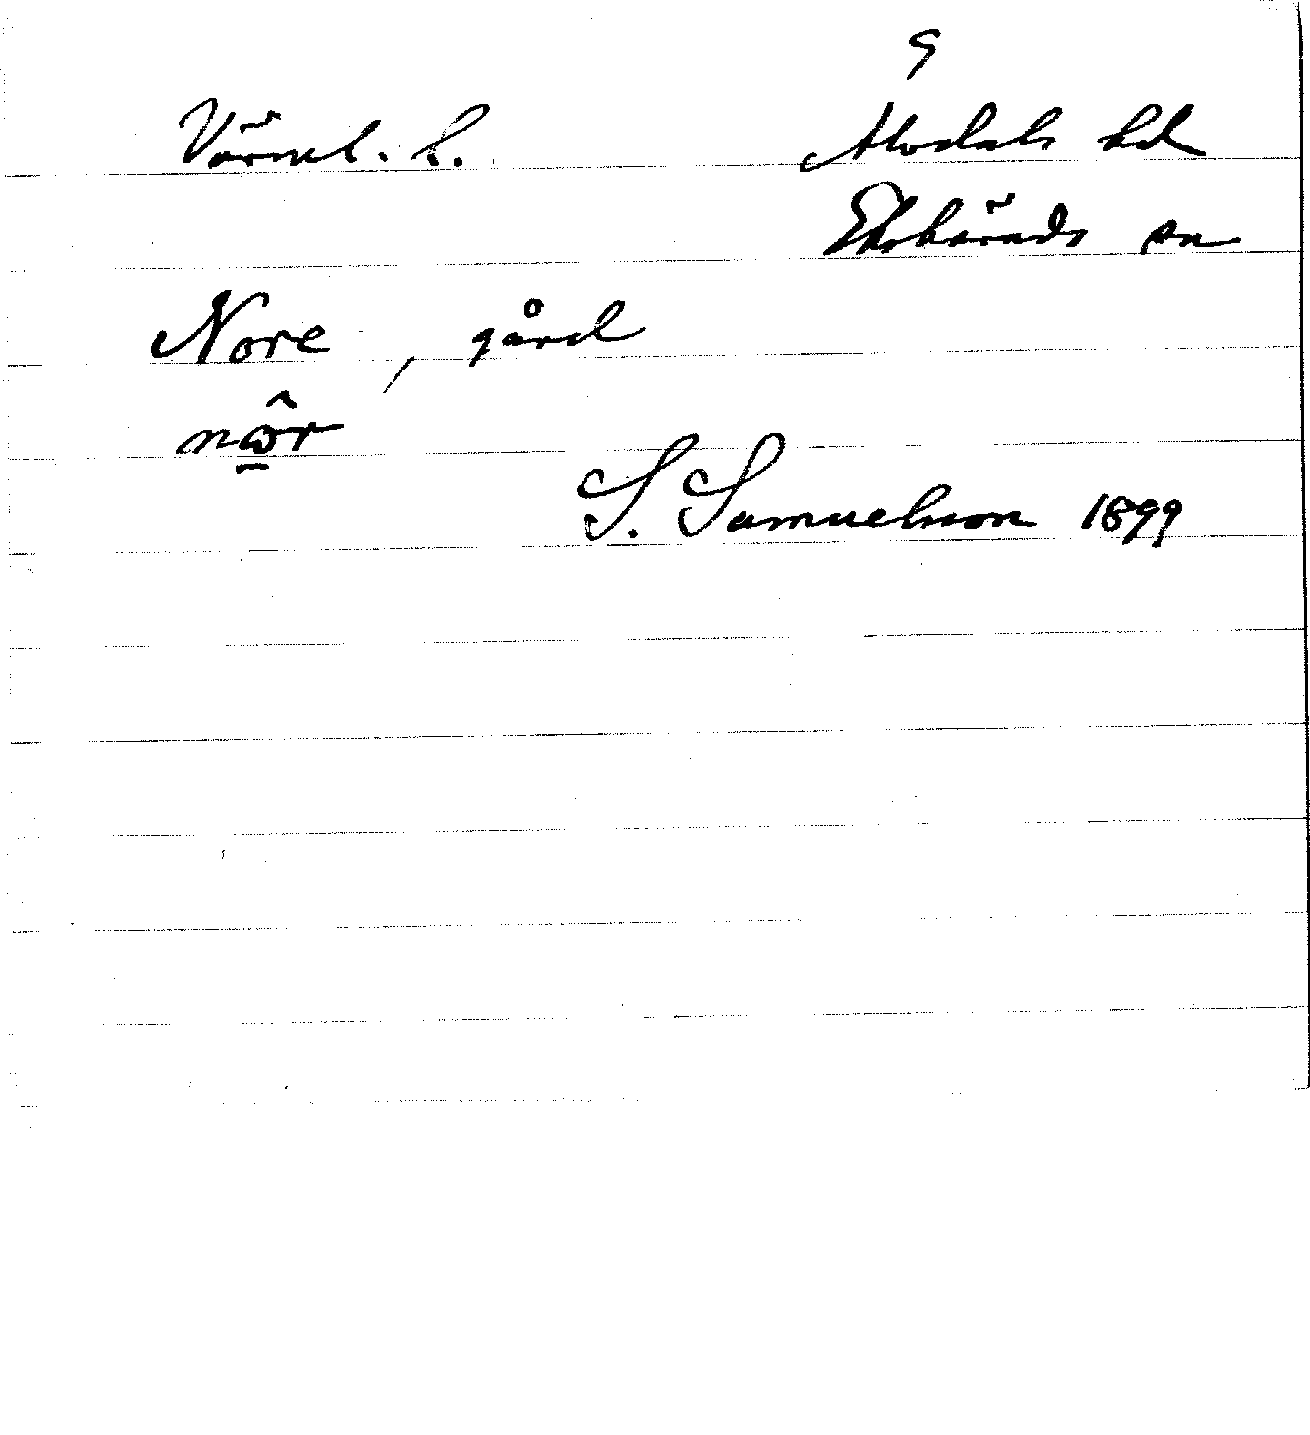 Värml. l.
Älvdals hd
Ekshärads sn
Nore, gård
nω̲̂r
S. Samuelson 1899